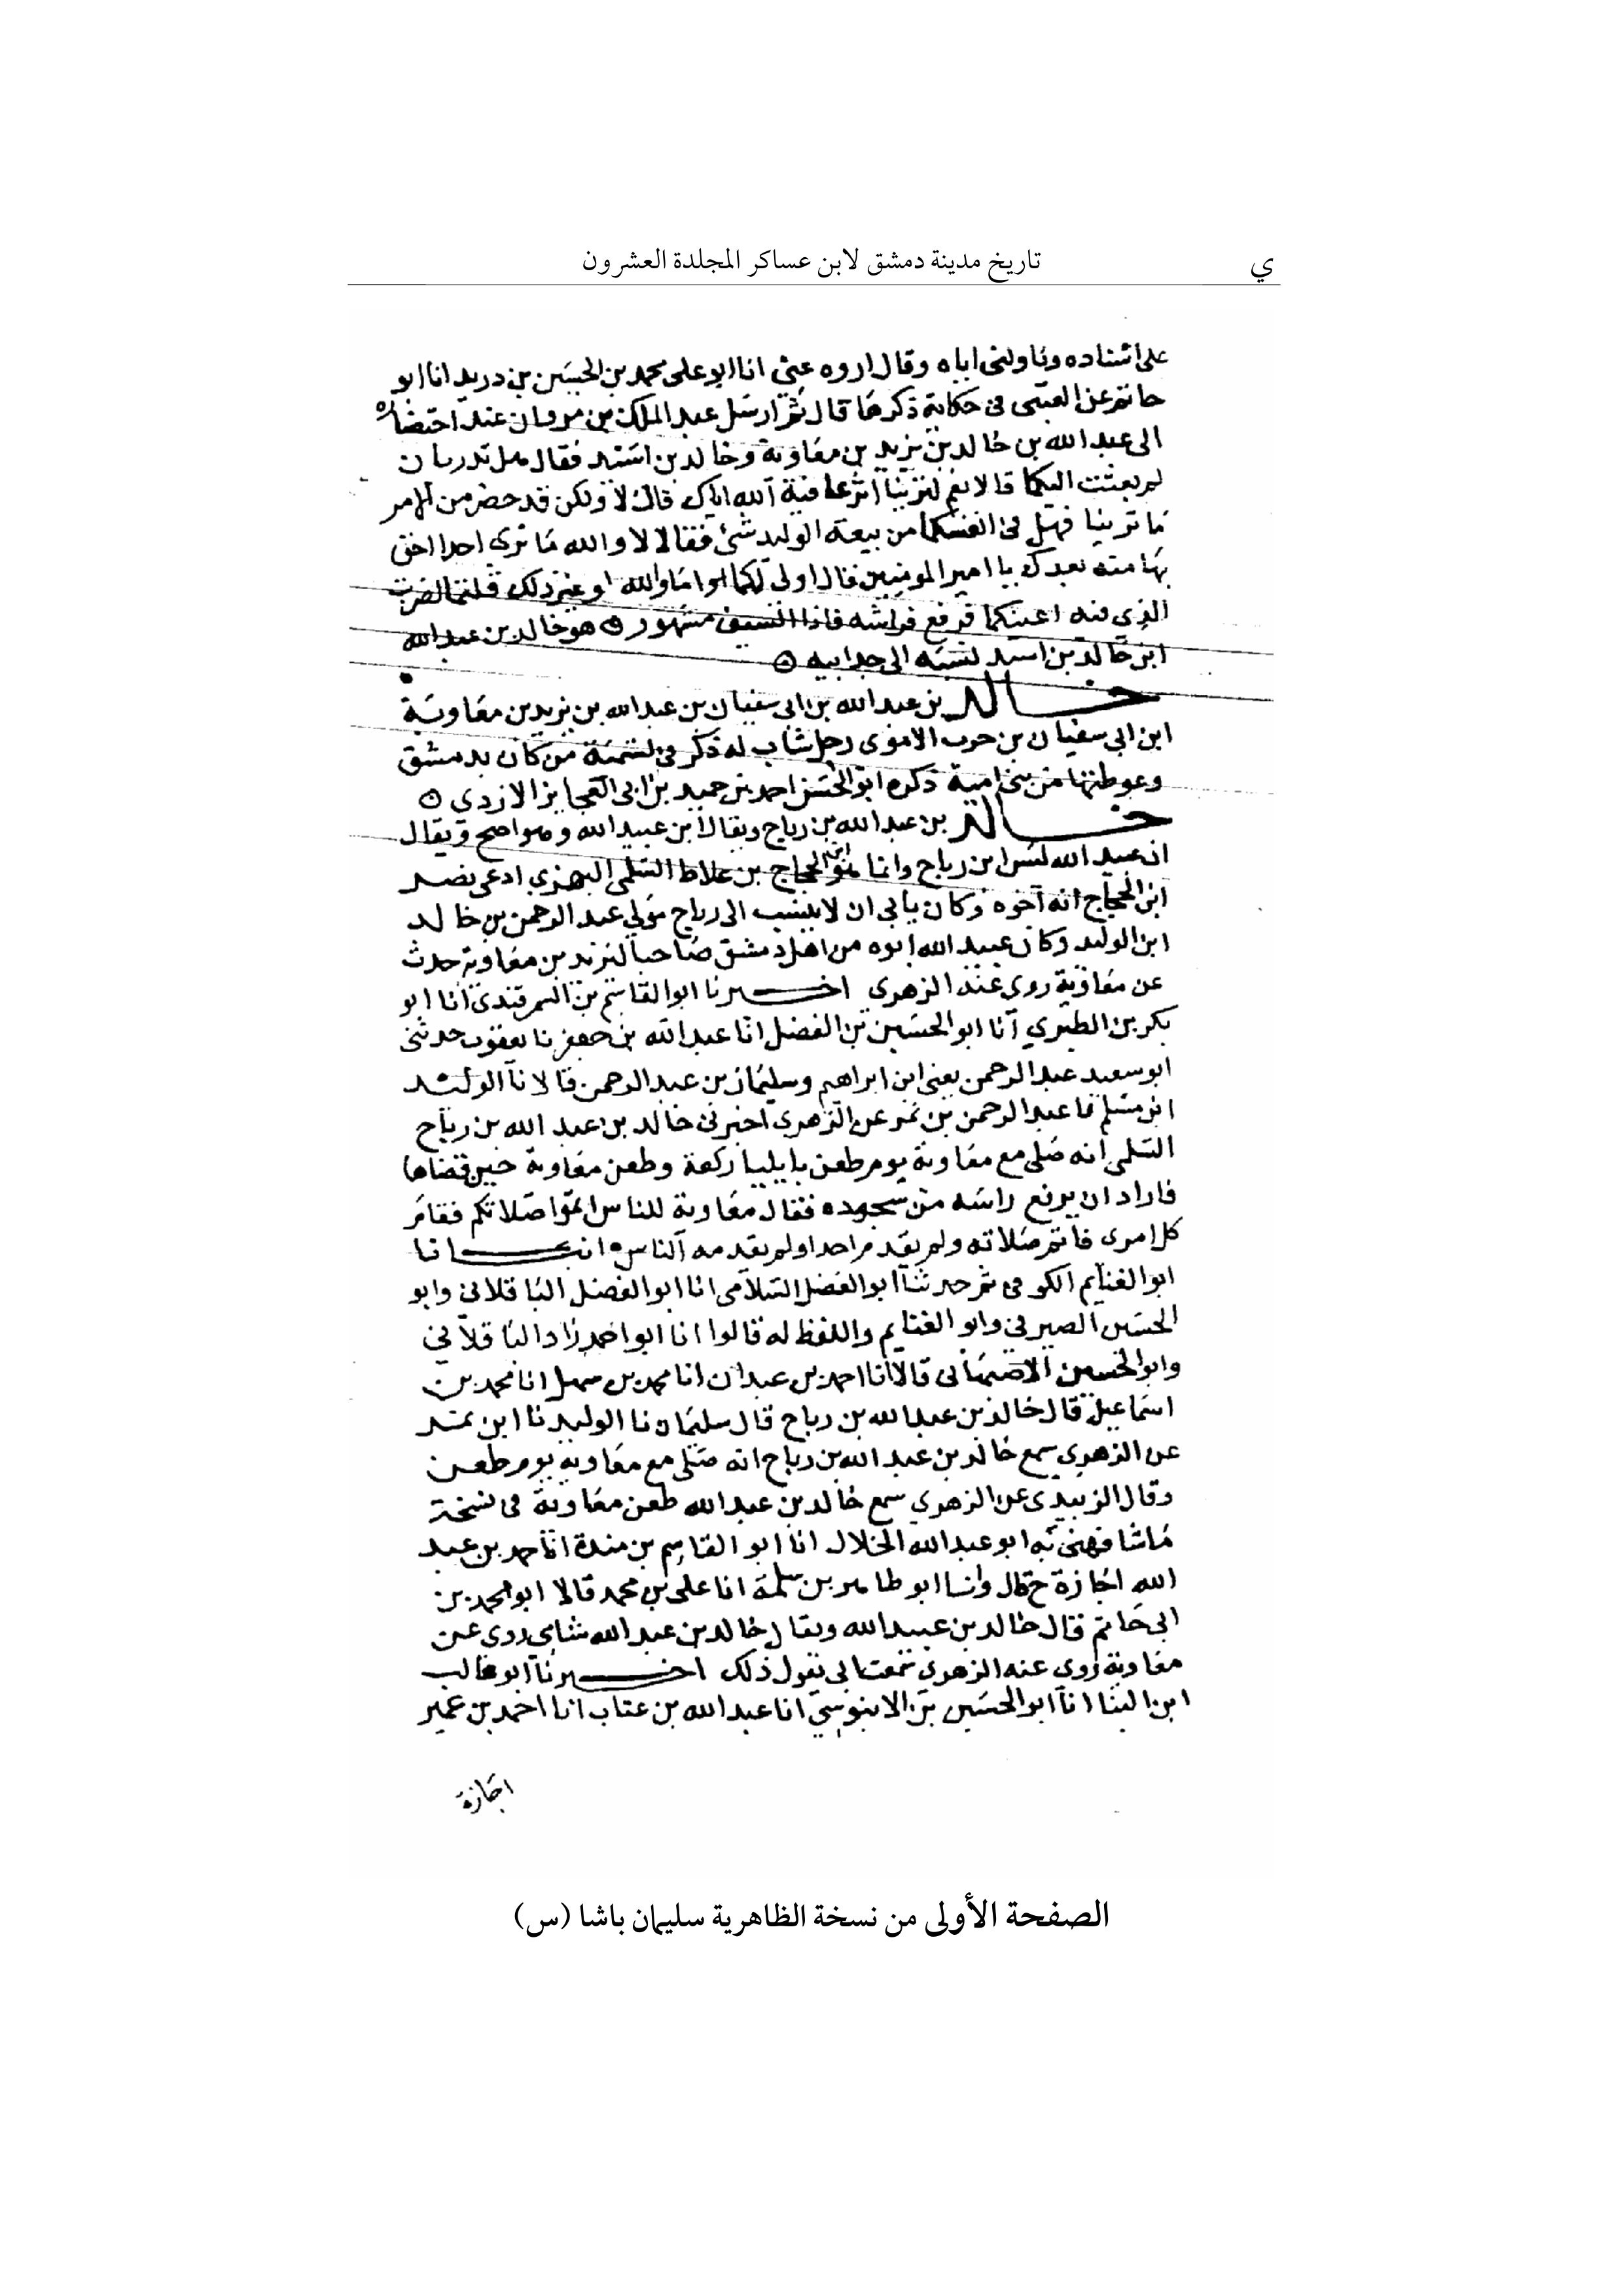 ي
تاريخ مدينة دمشق لابن عساكر المجلدة العشرون
على اسناده وناولنى اياه وقال اروه عنى انا ابو على محمد بن الحسين بن دريد انا ابو
حاتم عن العتبى فى حكاية ذكرها قال ثم ارسل عبد الملك بن مروان عند احتضاره
الى عبد الله بن خالد بن يزيد بن معاوية وخالد بن اسيد فقال هل تدريان
لم بعثت اليكما قالا نعم لترينا اثر عافية الله اياك قال لا ولكن قد حضر من الامر
ما ترينا فهل فى انفسكما من بيعة الوليد شئ فقالا لا والله ما نرى احدا احق
بها منه بعدك يا امير المومنين قال اولى لكما اما والله لو غير ذلك قلتما لضربت
الذى فيه اعينكما ثم رفع فراشه فاذا السيف مشهور هو خالد بن عبد الله
ابن خالد بن اسيد نسبه الى جد ابيه
خالد بن عبد الله بن ابى سفيان بن عبد الله بن يزيد بن معاوية
ابن ابى سفيان بن حرب الاموى رجل شاب له ذكر فى تسمية من كان بدمشق
وغوطتها من بنى امية ذكره ابو الحسن احمد بن حميد بن ابى العجايز الازدى
خالد بن عبد الله بن رباح ويقال ابن عبيد الله وهو اصح ويقال
ان عبيد الله ليس ابن رباح وانما هو ابن الحجاج بن علاط السلمى البهزى ادعى نصر
ابن الحجاج انه اخوه وكان يابى ان لا ينسب الى رباح مولى عبد الرحمن بن خالد
ابن الوليد وكان عبيد الله ابوه من اهل دمشق صاحبا ليزيد بن معاوية حدث
عن معاوية روى عنه الزهرى اخبرنا ابو القاسم بن السمرقندى انا ابو
بكر بن الطبرى انا ابو الحسين بن الفضل انا عبد الله بن جعفر نا يعقوب حدثنى
ابو سعيد عبد الرحمن يعنى ابن ابراهيم وسليمان بن عبد الرحمن قالا نا الوليد
ابن مسلم نا عبد الرحمن بن نمر عن الزهرى اخبرنى خالد بن عبد الله بن رباح
السلمى انه صلى مع معاوية يوم طعن بايليا ركعة وطعن معاوية حين قضاها
فاراد ان يرفع راسه من سجوده فقال معاوية للناس اتموا صلاتكم فقام
كل امرى فاتم صلاته ولم يقدم احدا ولم يقدمه الناس انبانا
ابو الغنايم الكوفى ثم حدثنا ابو الفضل السلامى انا ابو الفضل الباقلانى وابو
الحسين الصيرفى وابو الغنايم واللفظ له قالوا انا ابو احمد زاد الباقلانى
وابو الحسين الاصبهانى قالا انا احمد بن عبدان انا محمد بن سهل انا محمد بن
اسماعيل قال خالد بن عبد الله بن رباح قال سليمان نا الوليد نا ابن نمر
عن الزهرى سمع خالد بن عبد الله بن رباح انه صلى مع معاوية يوم طعن
وقال الزبيدى عن الزهرى سمع خالد بن عبد الله طعن معاوية فى نسخة
ما شافهنى به ابو عبد الله الخلال انا ابو القاسم بن مندة انا حمد بن عبد
الله اجازة ح قال وانا ابو طاهر بن سلمة انا على بن محمد قالا ابو محمد بن
ابى حاتم قال خالد بن عبيد الله ويقال خالد بن عبد الله شامى روى عن
معاوية روى عنه الزهرى سمعت ابى يقول ذلك اخبرنا ابو غالب
ابن البنا انا ابو الحسين بن الابنوسى انا عبد الله بن عتاب انا احمد بن عمير
اجازة
الصفحة الأولى من نسخة الظاهرية سليمان باشا (س)